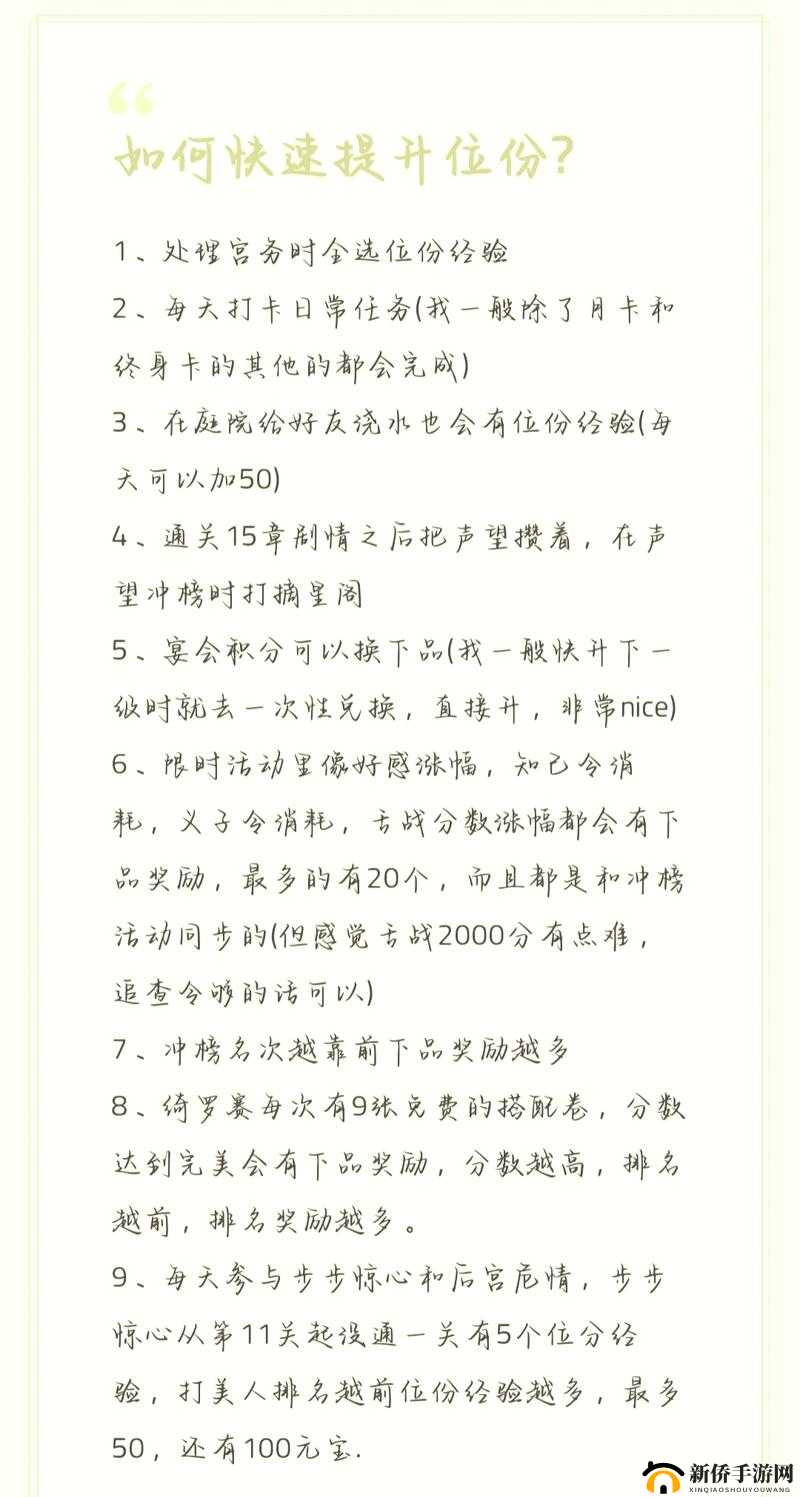 如何快速提升位份?
1、处理宫务时全选位份经验
2、每天打卡日常任务(我一般除了月卡和
终身卡的其他的都会完成)
3、在庭院给好友浇水也会有位份经验(每
天可以加50)
4、通关15章剧情之后把声望攒着，在声
望冲榜时打摘星阁
5、宴会积分可以换下品(我一般快升下一
级时就去一次性兑换，直接升，非常nice)
6、限时活动里像好感涨幅，知己令消
耗，义子令消耗，舌战分数涨幅都会有下
品奖励，最多的有20个，而且都是和冲榜
活动同步的(但感觉舌战2000分有点难，
追查令够的话可以)
7、冲榜名次越靠前下品奖励越多
8、绮罗赛每次有9张免费的搭配卷，分数
达到完美会有下品奖励，分数越高，排名
越前，排名奖励越多。
9、每天参与步步惊心和后宫危情，步步
惊心从第11关起没通一关有5个位分经
验，打美人排名越前位份经验越多，最多
50，还有100元宝.
新侨手游网
XINQIAOSHOUYOUWANG